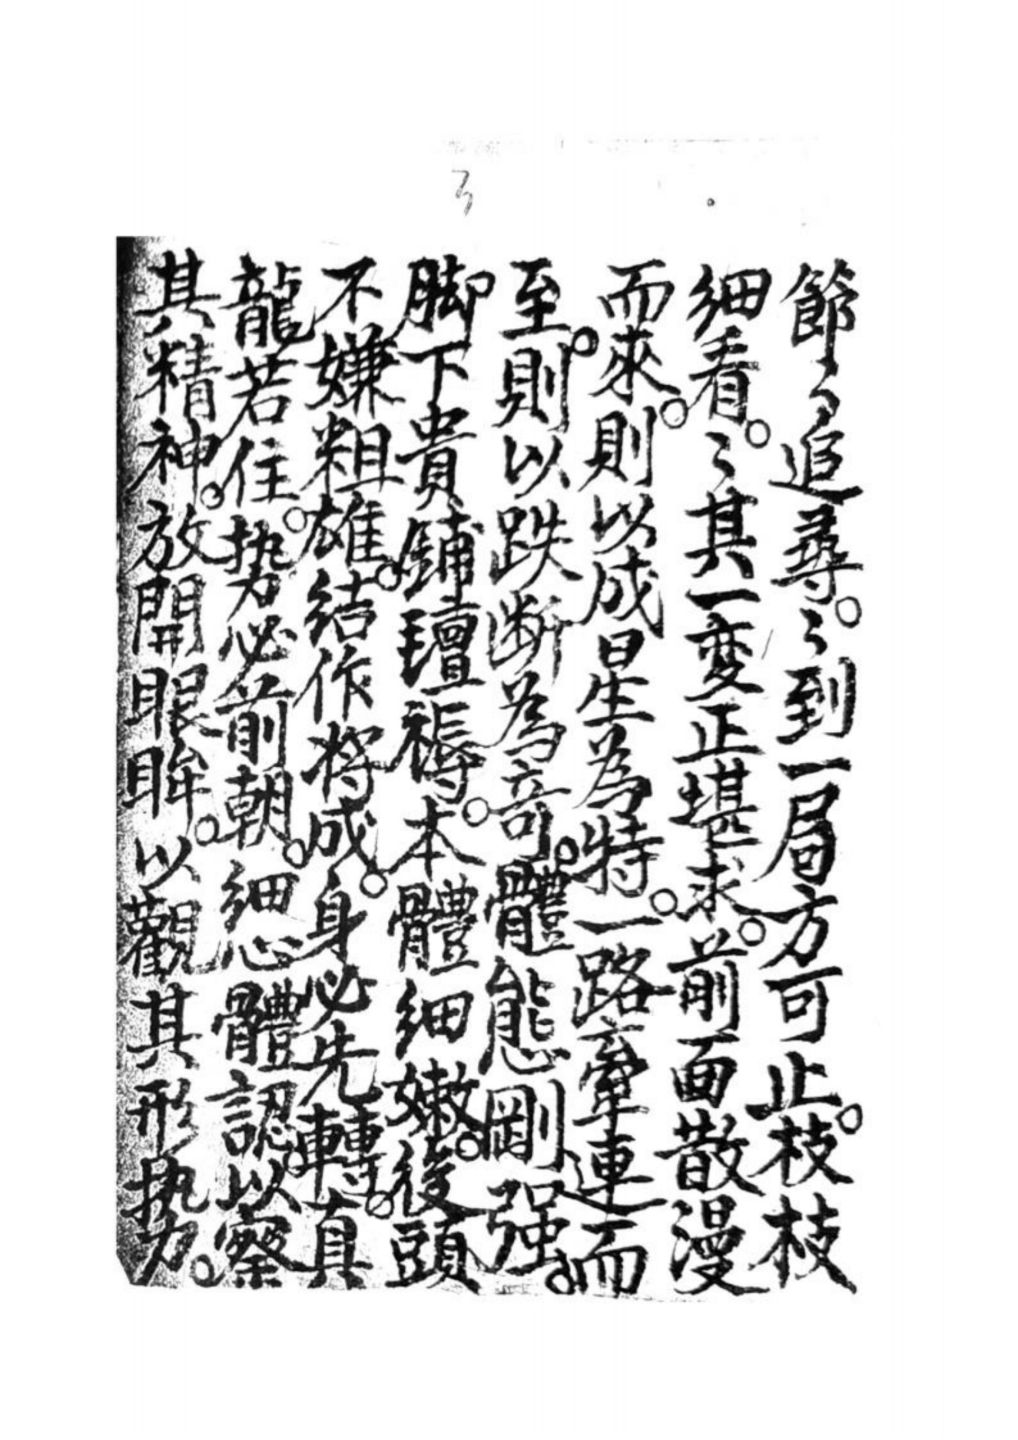 節々追尋。々到一局方可止。枝枝
細看。々其一变正堪求。前面散漫
而來。則以成星為特。一路牽連而
至。則以跌断為竒。體態剛强。
脚下貴鋪氊褥。本體細嫩。後頭
不嫌粗雄。結作将成。身必先轉。真
龍若住。势必前朝。細心體認。以察
其精神。放開眼眸。以觀其形势。